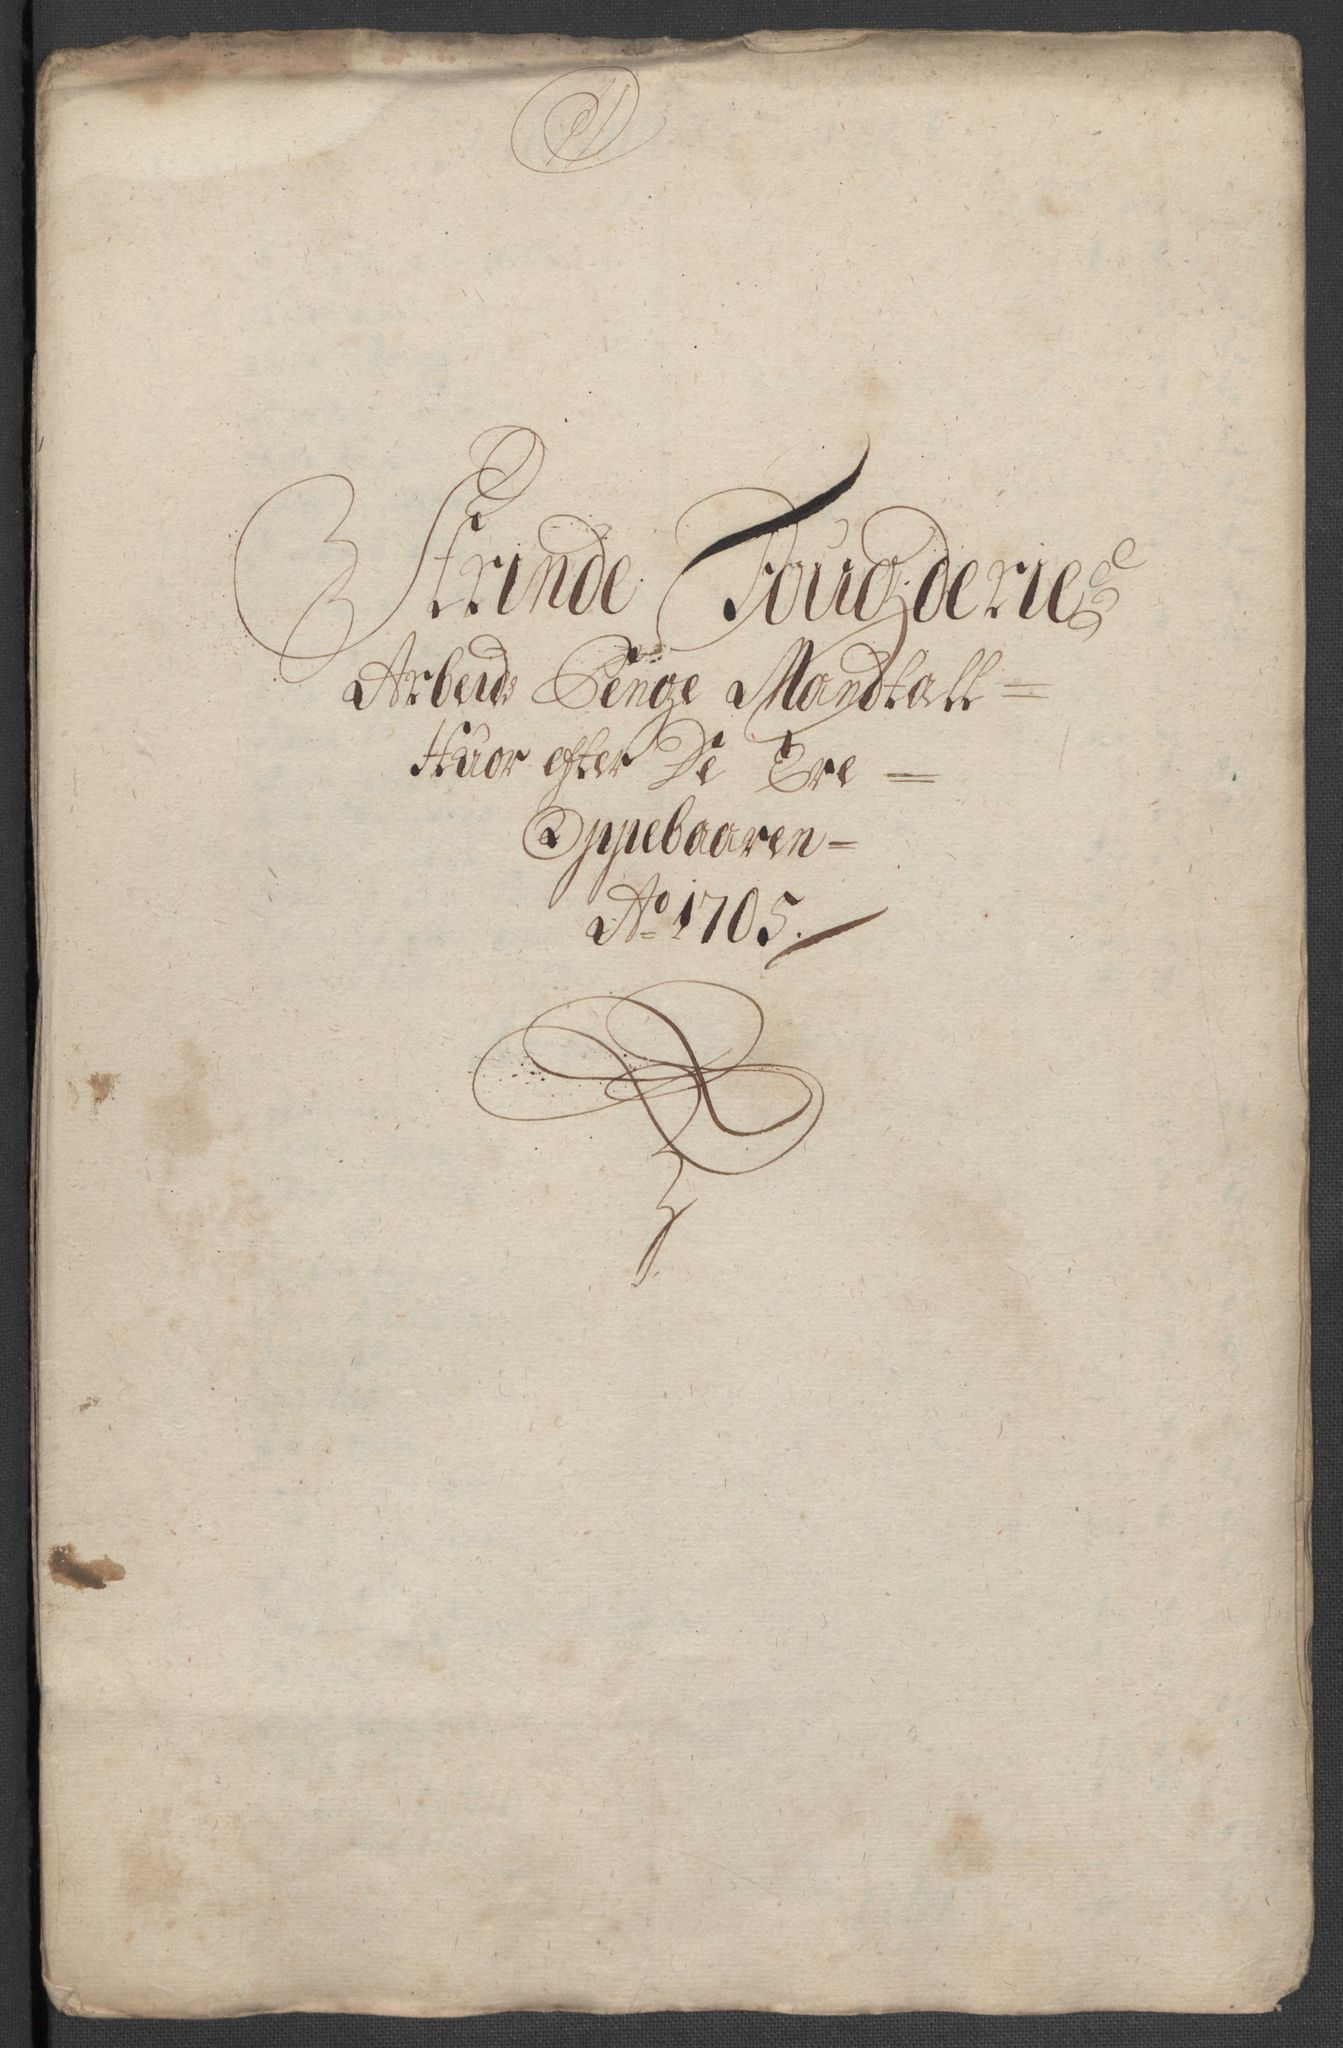 Strinde Fougderies
Arbeids Penge Mandtall =
Huor efter De Ere =
Oppebaaren =
Ao 1705.